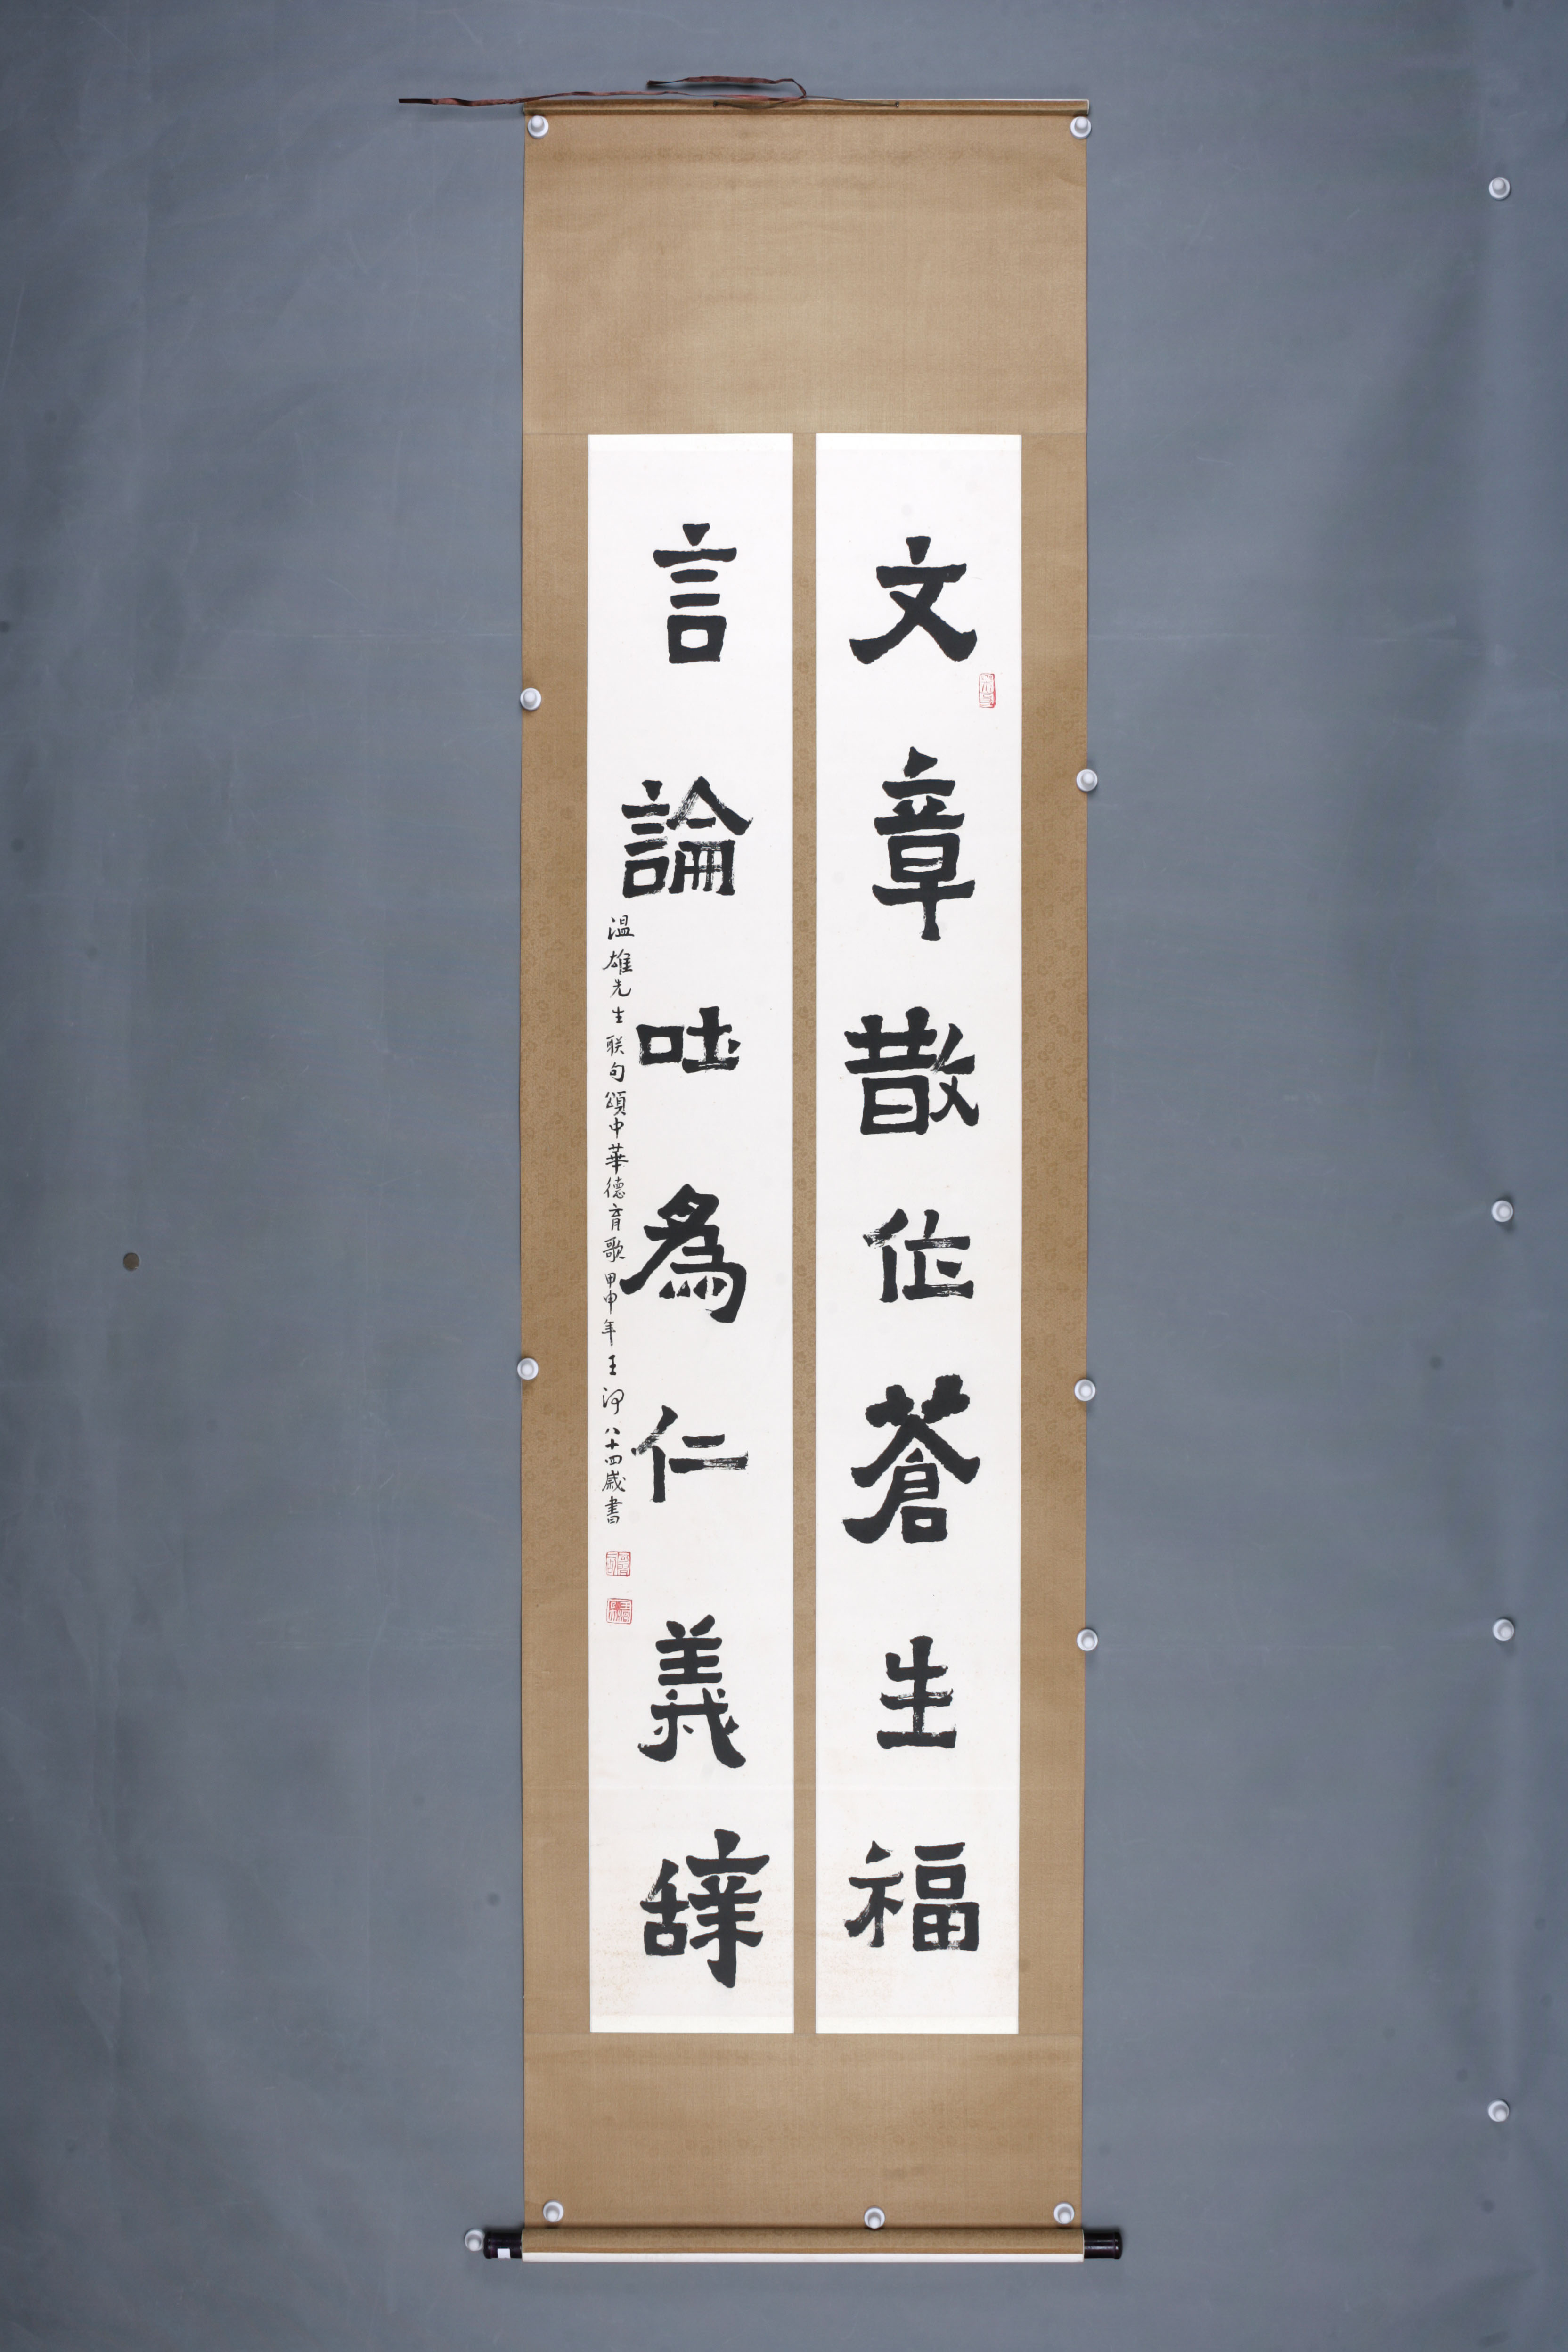 文章散作蒼生福
言論吐為仁義辭
温雄先生联句頌中華德育歌甲申年王 八十四歲書